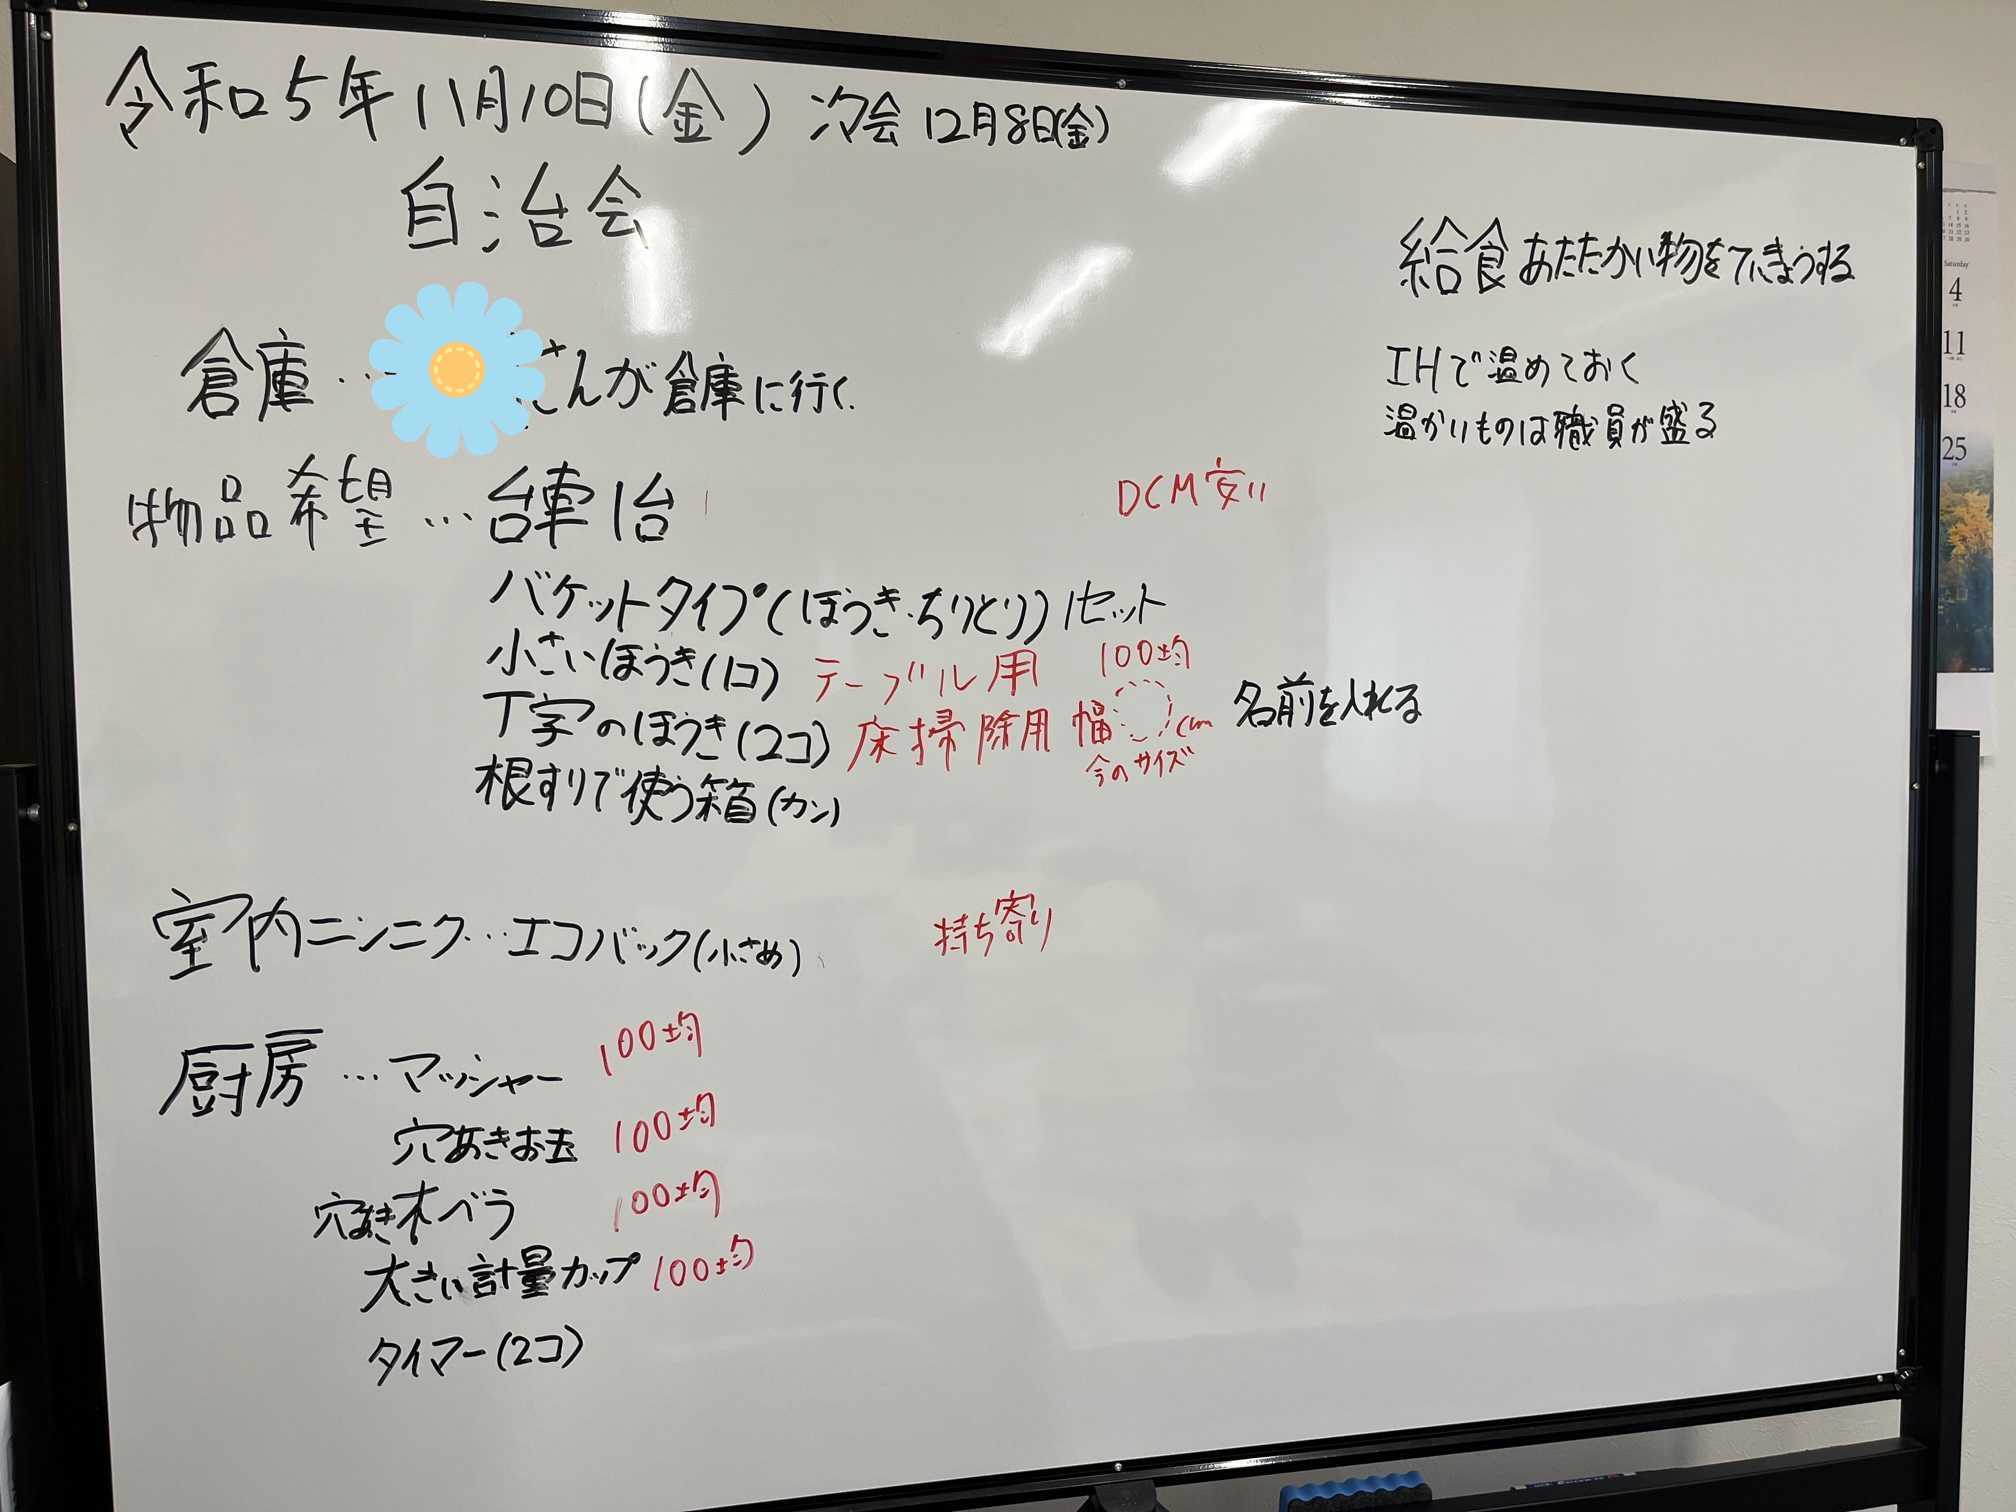 令和5年11月10日(金) 次会 12月8日(金)
自治会
給食 あたたかい物をていきょうする
IHで温めておく
温かいものは職員が盛る
倉庫…さんが倉庫に行く.
物品希望…台車1台
DCM安い
バケットタイプ(ほうき・ちりとり)1セット
小さいほうき(1コ) テーブル用 100均
丁字のほうき(2コ) 床掃除用 幅 cm 名前を入れる
今のサイズ
根すりで使う箱(カン)
室内ニンニク…エコバック(小さめ) 持ち寄り
厨房…マッシャー 100均
穴あきお玉 100均
穴あき木ベラ 100均
大きい計量カップ 100均
タイマー(2コ)
Saturday
4
11
18
25